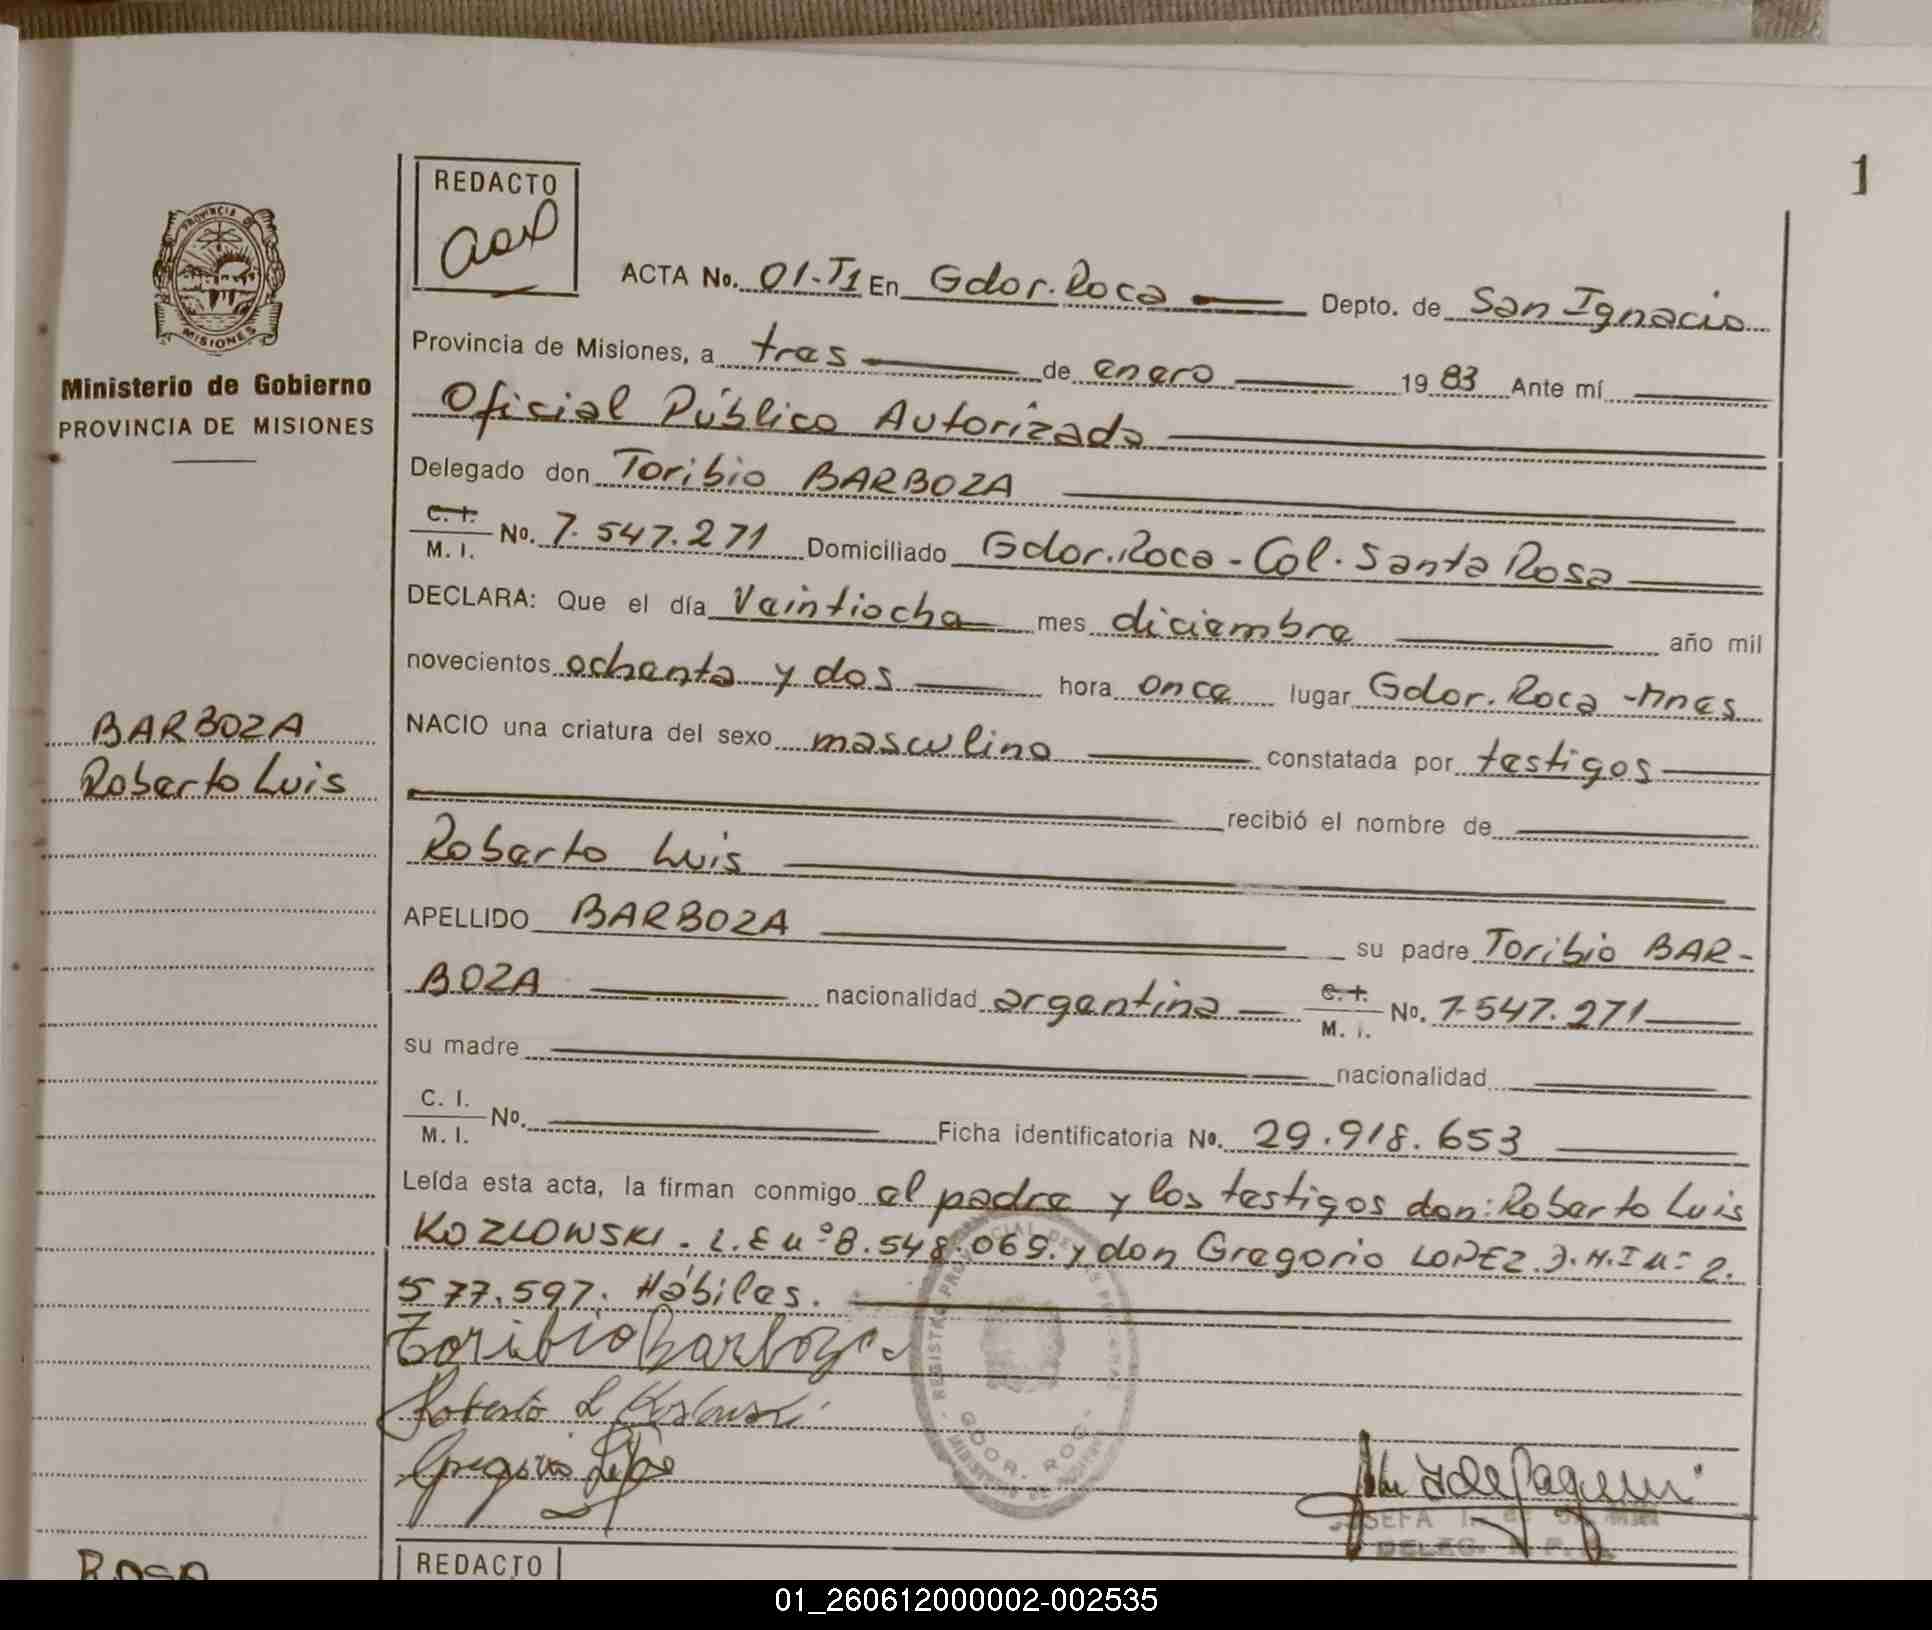 1
REDACTO
ACTA No. 01-T1 En Gdor. Roca Depto. de San Ignacio
PROVINCIA DE
MISIONES
Ministerio de Gobierno
PROVINCIA DE MISIONES
Provincia de Misiones, a tres de enero 1983 Ante mí
Oficial Público Autorizado
Delegado don Toribio BARBOZA
C. I. M. I. No. 7.547.271 Domiciliado Gdor. Roca - Col. Santa Rosa
DECLARA: Que el día Veintiocho mes diciembre año mil
novecientos ochenta y dos hora once lugar Gdor. Roca -Mnes
BARBOZA
Roberto Luis
NACIO una criatura del sexo masculino constatada por testigos
recibió el nombre de
Roberto Luis
APELLIDO BARBOZA su padre Toribio BAR-
BOZA nacionalidad argentina C. I. M. I. No. 7.547.271
su madre nacionalidad
C. I. M. I. No. Ficha identificatoria No. 29.918.653
Leída esta acta, la firman conmigo el padre y los testigos don: Roberto Luis
KOZLOWSKI. L.E nº 8.548.069. y don Gregorio LOPEZ. D.N.I nº 2.
577.597. Hábiles.
Toribio Barboza
Roberto L
Gregorio
GDOR. ROCA
DELEG.
REDACTO
ROSA
01_260612000002-002535